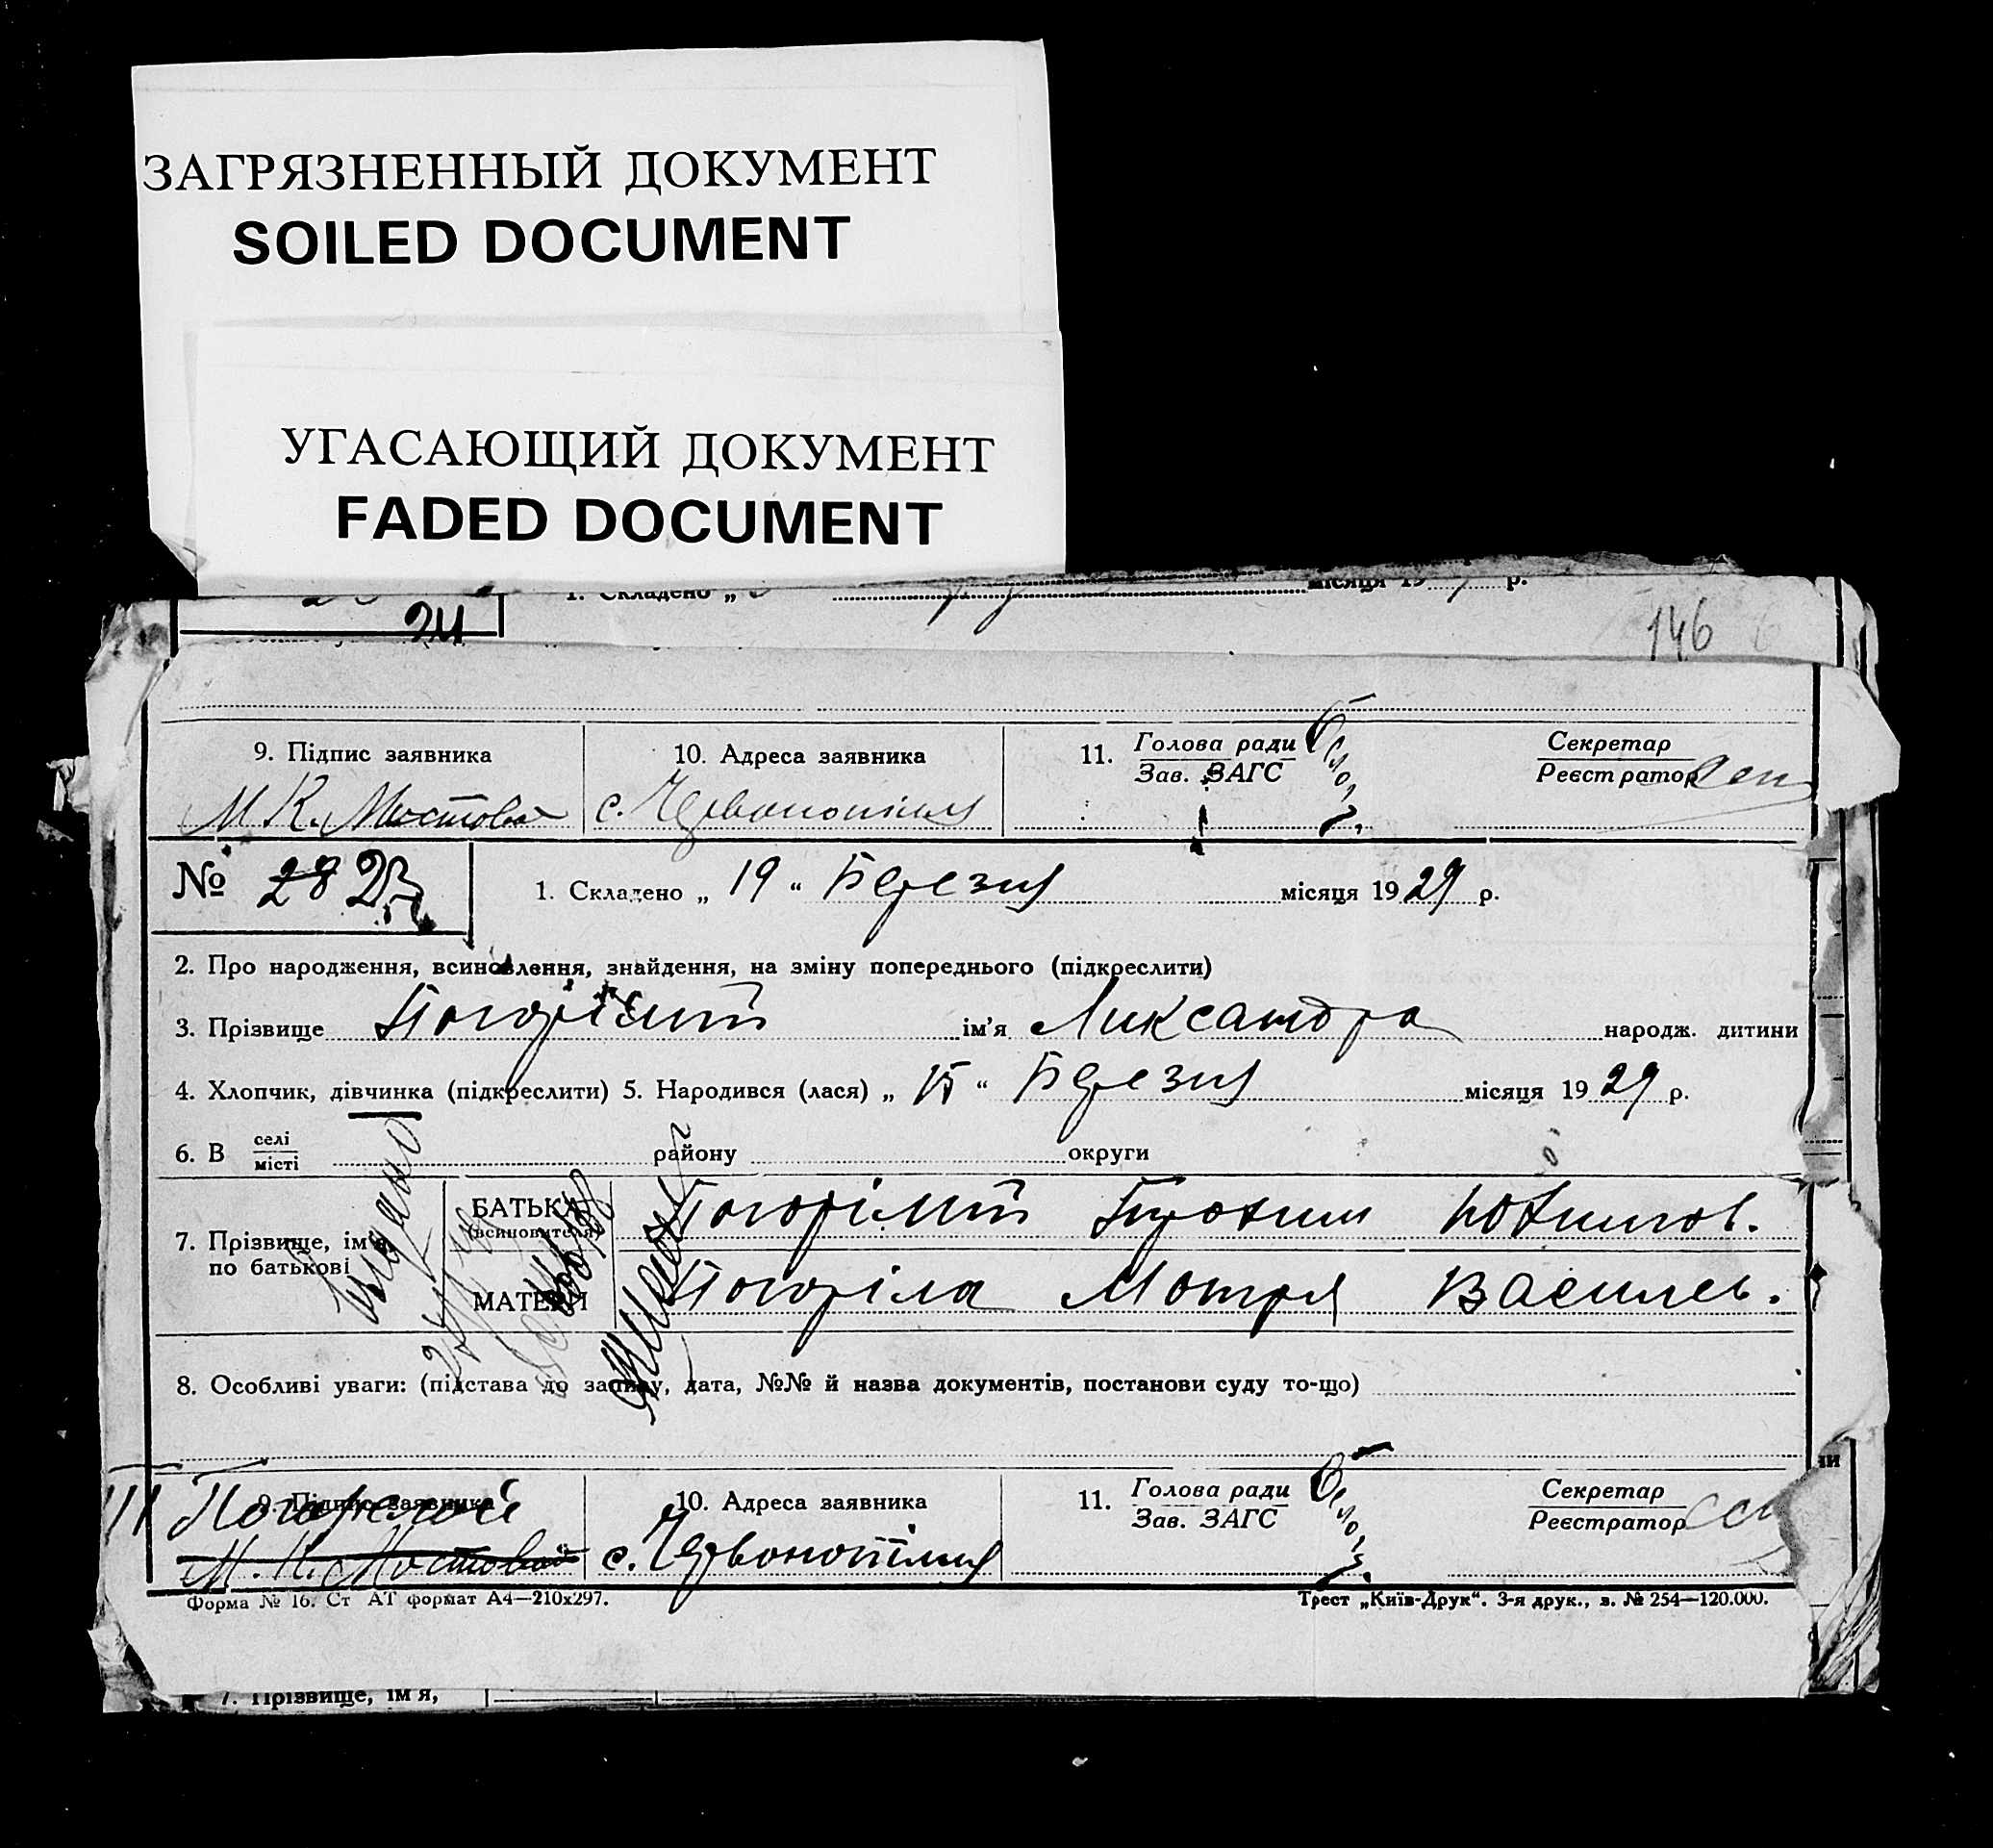 ЗАГРЯЗНЕННЫЙ ДОКУМЕНТ
SOILED DOCUMENT
УГАСАЮЩИЙ ДОКУМЕНТ
FADED DOCUMENT
24 1. Складено „ місяця 19 р.
146
9. Підпис заявника 10. Адреса заявника 11. Голова ради Секретар
Зав. ЗАГС Реєстратор
М К. Мостовой с. Червонопілля
№ 28 23 1. Складено „ 19 “ Березня місяця 1929 р.
2. Про народження, всиновлення, знайдення, на зміну попереднього (підкреслити)
3. Прізвище Погорілий ім'я Лиександра народж. дитини
4. Хлопчик, дівчинка (підкреслити) 5. Народився (лася) „ 15 “ Березня місяця 1929 р.
6. В селі району округи
місті
7. Прізвище, ім'я, по батькові
БАТЬКА (всиновителя) Погорілий Трохим Юхимов.
МАТЕРИ Погоріла Мотря Василев.
8. Особливі уваги: (підстава до запису, дата, №№ й назва документів, постанови суду то-що)
9. Підпис заявника 10. Адреса заявника 11. Голова ради Секретар
Зав. ЗАГС Реєстратор
Погорелой
М. К. Мостовой с. Червонопілля
Форма № 16. Ст АТ формат А4—210х297. Трест „Київ-Друк“. 3-я друк., з. № 254—120.000.
7. Прізвище, ім'я,